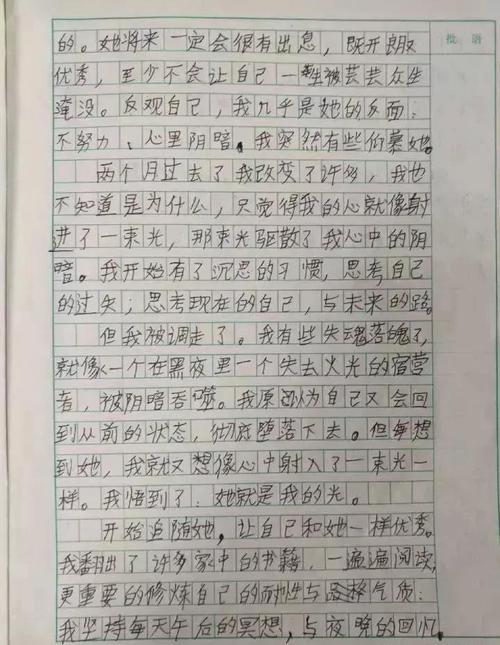 批语
的。她将来一定会很有出息，既开朗又
优秀，至少不会让自己一生被芸芸众生
淹没。反观自己，我几乎是她的反面：
不努力、心里阴暗。我突然有些伯慕她。
两个月过去了我改变了许多，我也
不知道是为什么，只觉得我的心就像射
进了一束光，那束光驱散了我心中的阴
暗。我开始有了沉思的习惯，思考自己
的过失；思考现在的自己，与未来的路。
但我被调走了。我有些失魂落魄了，
就像一个在黑夜里一个失去火光的宿营
者，被阴暗吞噬。我原以为自己又会回
到从前的状态，彻底堕落下去。但每想
到她，我就又想像心中射入了一束光一
样。我悟到了：她就是我的光。
开始追随她，让自己和她一样优秀。
我翻出了许多家中的书籍，一遍遍阅读，
更重要的修炼自己的耐性与气质：
我坚持每天午后的冥想，与夜晚的回忆。